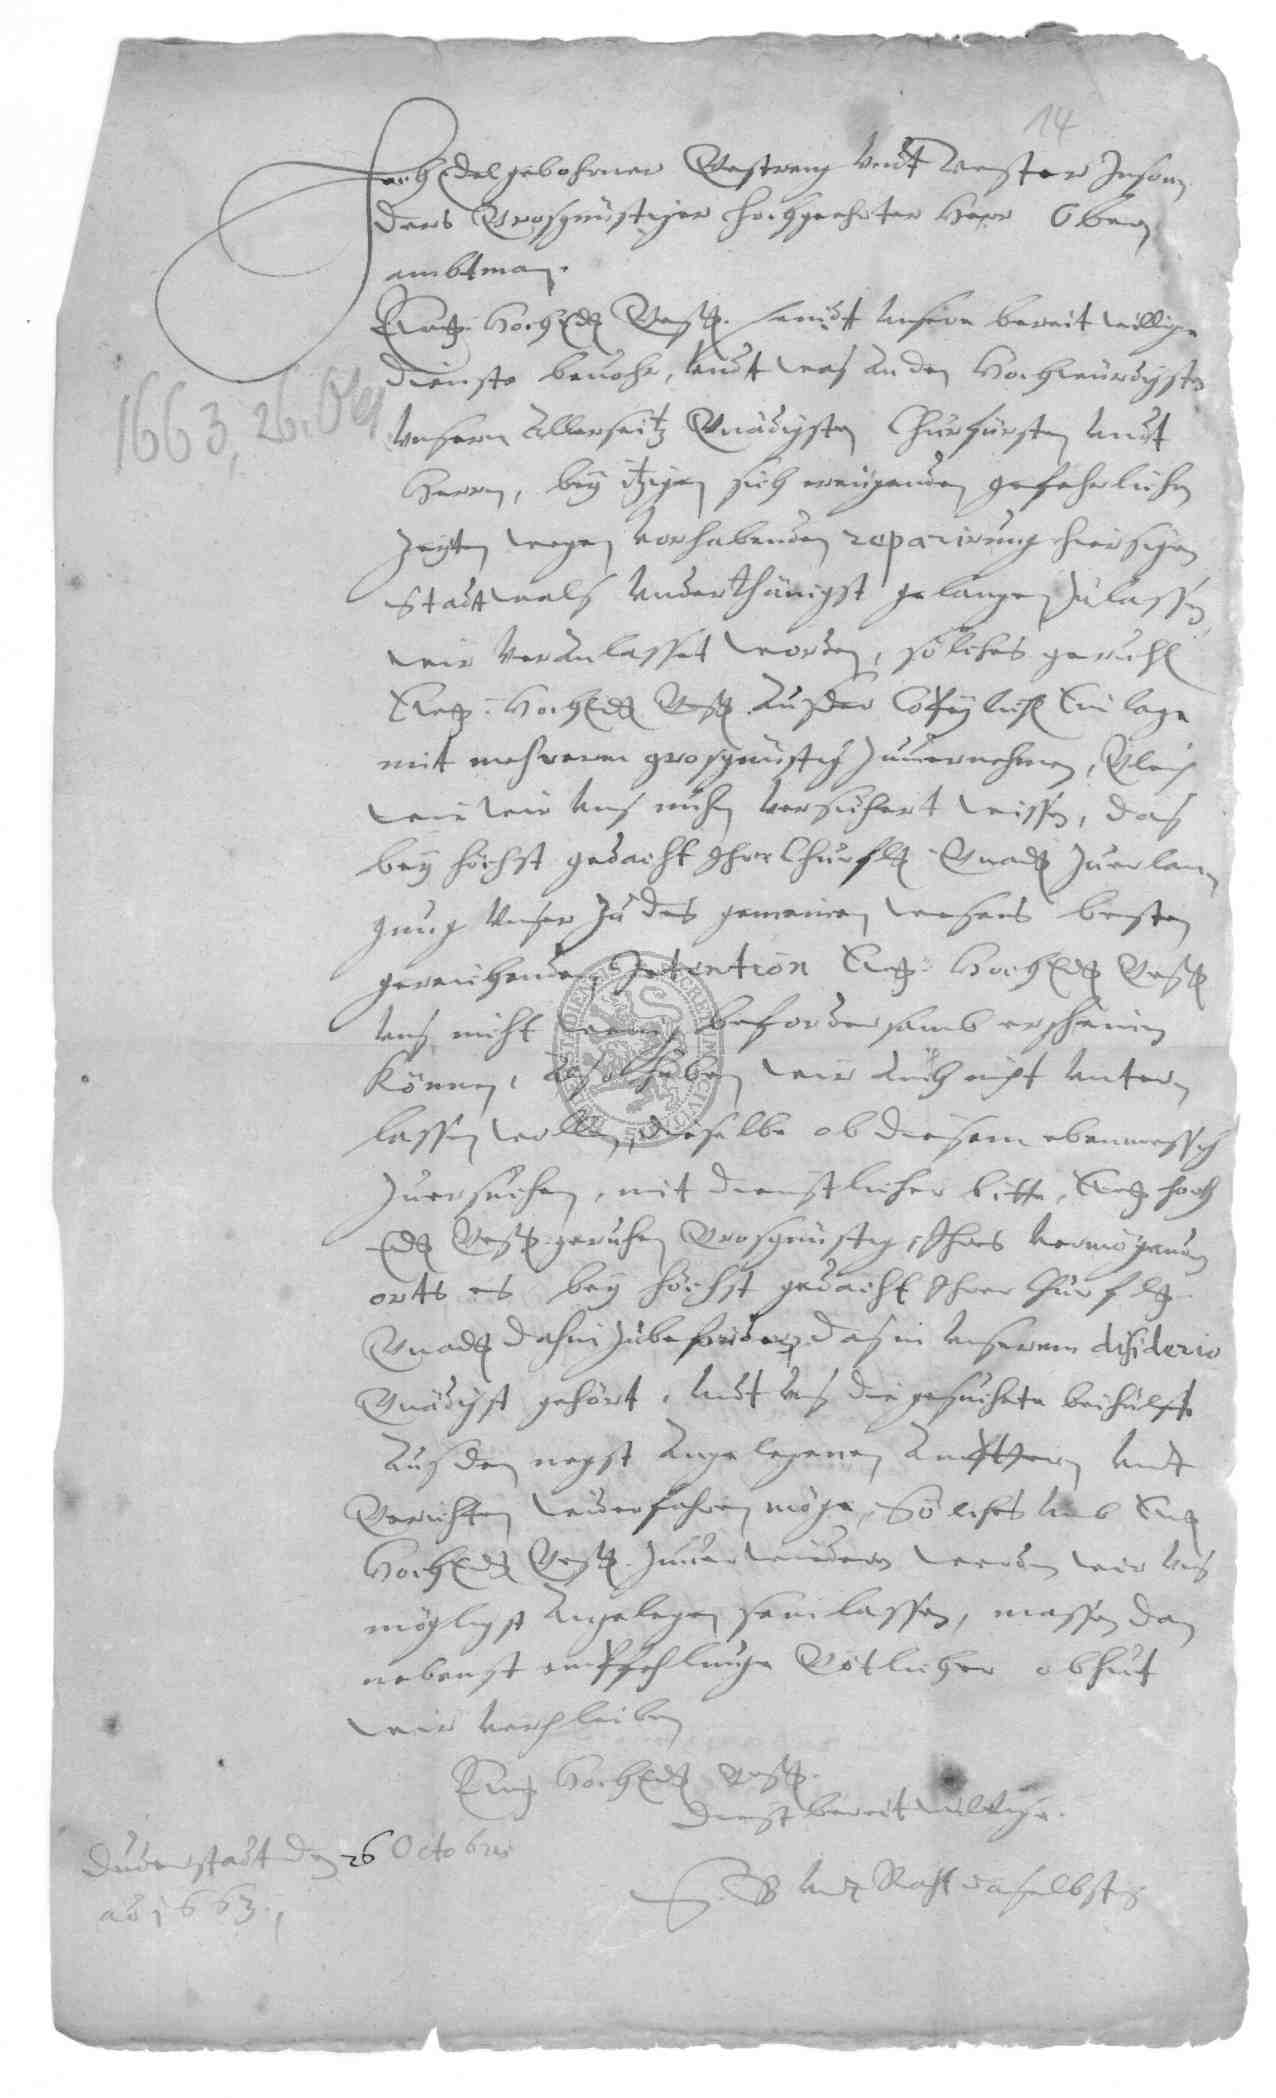 14
Hoch Edelgebohrner Gestreng Undt Vester Inson
ders Grosgünstiger hochgeehrter Herr Ober
ambtman.
Ewer HochEdel Gestr. seindt Unsere bereit willige
dienste beuohr, Undt was An den Hochwürdigsten
Unsern Allerseitz Gnädigsten Churfürsten Undt
Herrn, bey itzigen sich ereügenden gefehrlichen
Zeiten wegen Vorhabenden reparirung hiersigen
Stadtwals Underthänigst gelangen Zulassen,
wir Veranlasset worden, solches geruhe
Ewer HochEdel Gestr. Aus der Copeylich Einlage
mit mehrerem grosgünstig Zuuernehmen, Gleich
wie wir Uns nuhn Versichert wissen, das
bey höchst gedacht Ihrer Churfl. Gnad. Zuerlan
gung Unser Zu des gemeinen wesens besten
gereichenden Intention Ewer HochEdel Gestr.
Uns nicht wenig befordersamb erscheinen
können, Also haben wir Auch nicht Unter
lassen wollen, dieselbe ob diesem ebenmessig
Zuersuchen, mit dienstlicher bitte, Ewer Hoch
Edel Gestr. geruhen Grosgünstig, Ihres Vermögenden
orts es bey höchst gedacht Ihrer Churfl.
Gnad. dahin Zubefordern, das in Unserem desiderio
Gnädigst gehört, Undt Uns die gesuchete beihülffe
Aus den negst Angelegenen Ambttern Undt
Gerichten widerfahren möge, Solches Umb Ewer
HochEdel Gestr. Zuuerwiedern werden wir Uns
möglichst Angelegen sein lassen, massen dan
nebenst empffehlunge Götlicher obhut
wir Verpleiben
Ewer HochEdel Gestr.
dienstbereitwillige.
Duderstadt den 26 Octobris
ao 1663.
B Undt Raht daselbsten
1663, 26. Oct